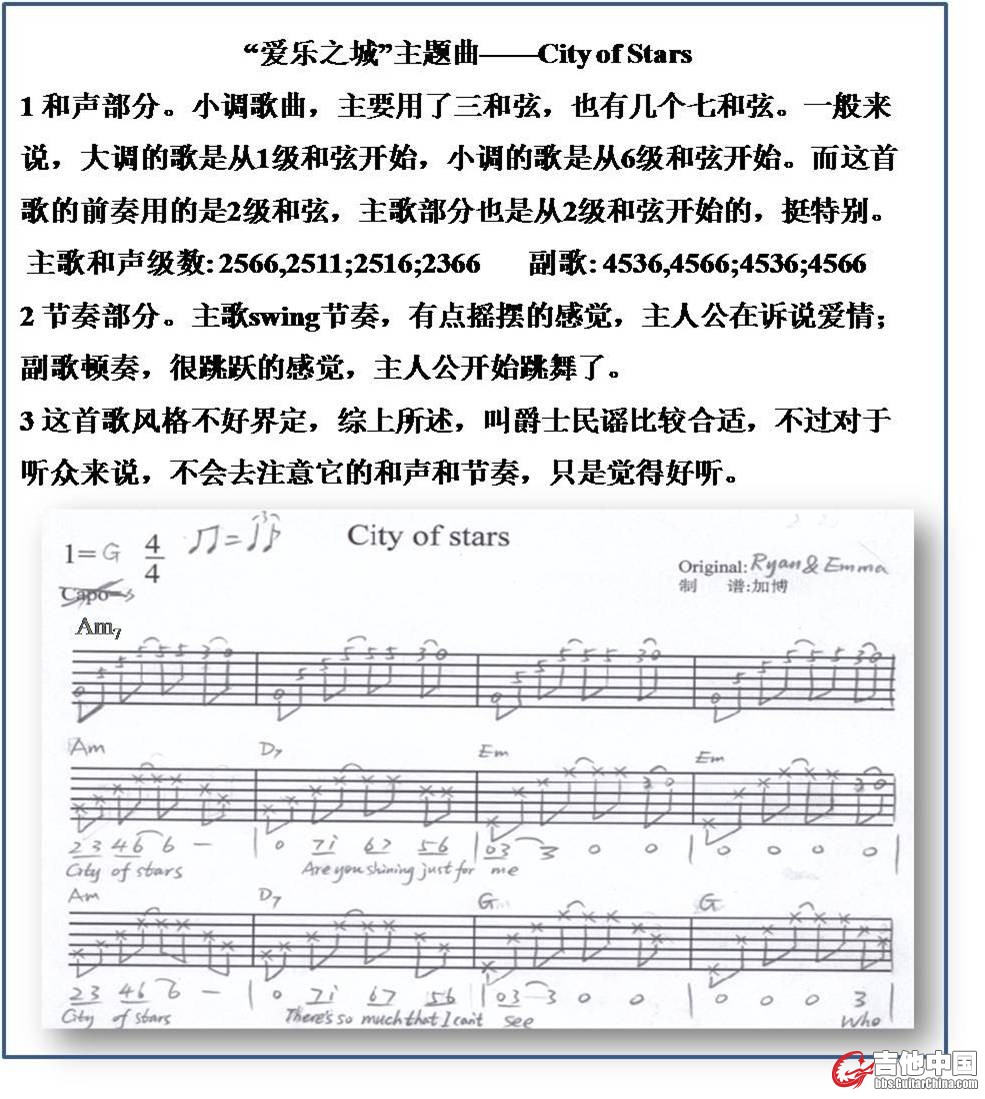 “爱乐之城”主题曲——City of Stars
1 和声部分。小调歌曲，主要用了三和弦，也有几个七和弦。一般来
说，大调的歌是从1级和弦开始，小调的歌是从6级和弦开始。而这首
歌的前奏用的是2级和弦，主歌部分也是从2级和弦开始的，挺特别。
主歌和声级数: 2566,2511;2516;2366 副歌: 4536,4566;4536;4566
2 节奏部分。主歌swing节奏，有点摇摆的感觉，主人公在诉说爱情；
副歌顿奏，很跳跃的感觉，主人公开始跳舞了。
3 这首歌风格不好界定，综上所述，叫爵士民谣比较合适，不过对于
听众来说，不会去注意它的和声和节奏，只是觉得好听。
City of stars
1=G 4/4 ♫=♩♪ 3
Original: Ryan & Emma
制 谱:加博
Capo
Am7
0 5 5 5 5 5 3 0 0 5 5 5 5 5 3 0 0 5 5 5 5 5 3 0 0 5 5 5 5 5 3 0
Am D7 Em Em
3 0 3 0
2 3 4 6 6 — | 0 7 1 6 7 5 6 | 0 3 3 0 0 | 0 0 0 0 |
City of stars Are you shining just for me
Am D7 G G
2 3 4 6 6 — | 0 7 1 6 7 5 6 | 0 3 3 0 0 | 0 0 0 3
City of stars There's so much that I can't see Who
吉他中国
bbs.GuitarChina.com